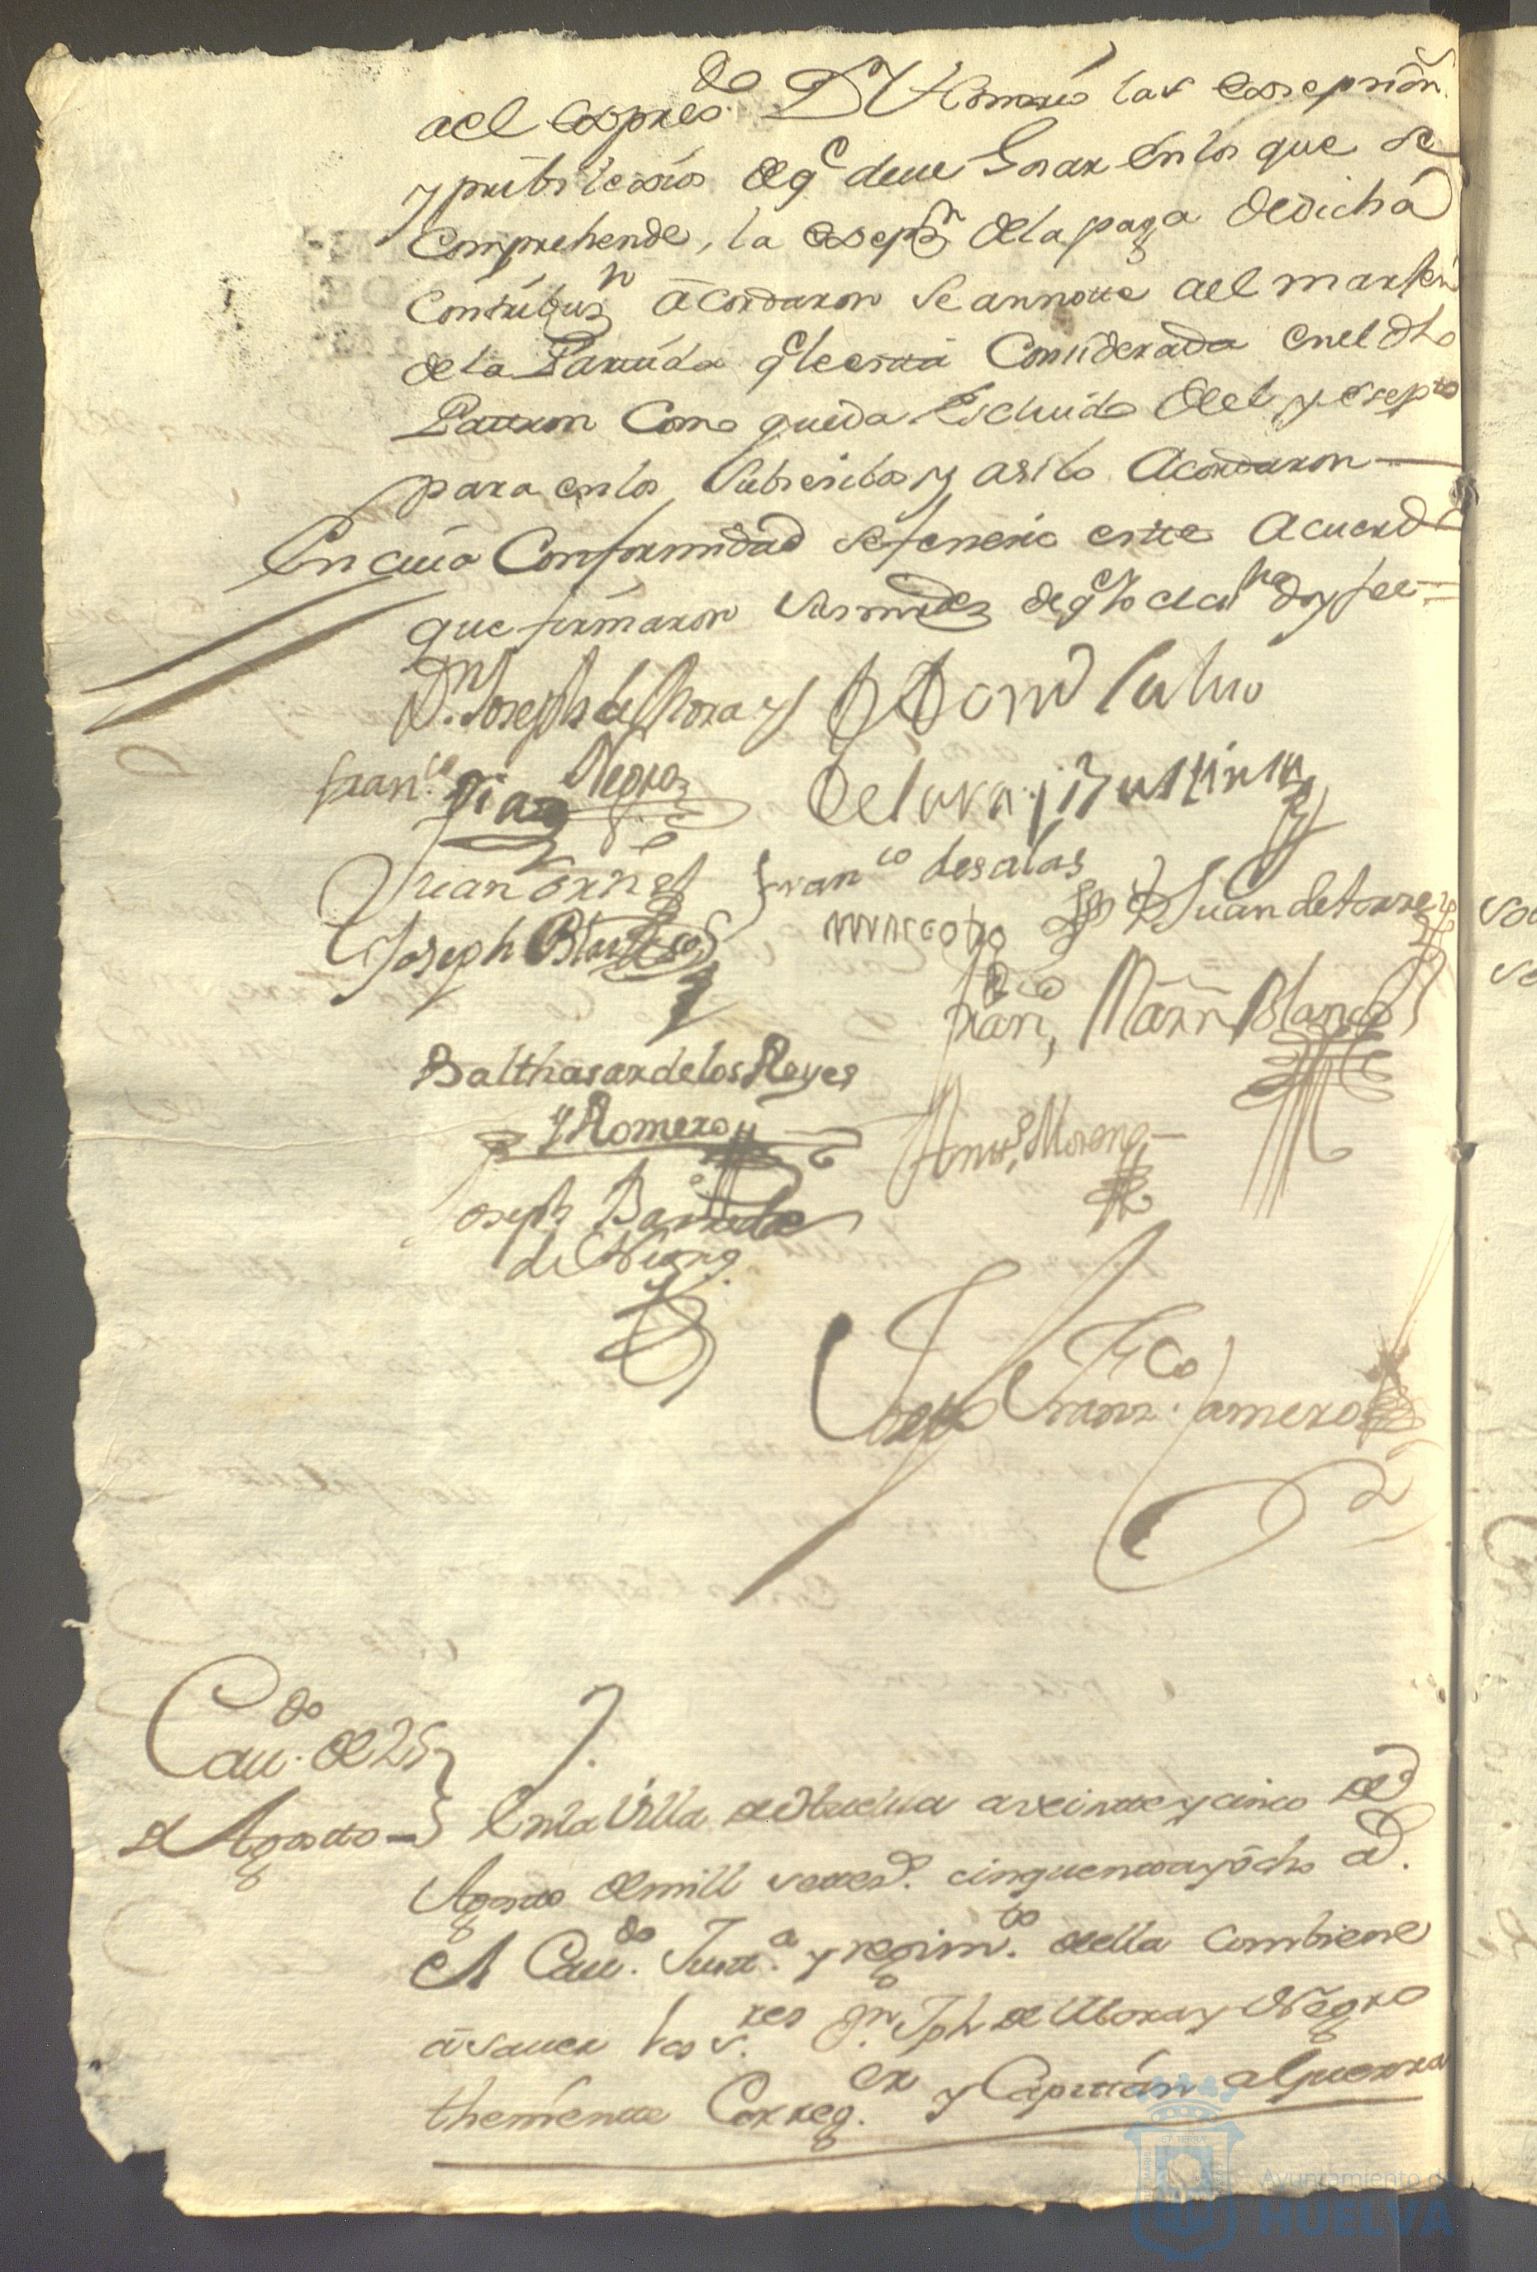 ael expres.do Dn Thomas las exsepcion.
y pribilexios de q.e deue Gosar en los que se
Comprehende, la exsepz.n de la paga de dicha
Contribuz.n acordaron se annotte ael marjen
de la Partida q.e le está Considerada en el dho
Patron Como queda Escluido del y exsepto
para en los Subsesibos y asi lo Acordaron
En cuia Conformidad se fenezio este Acuerdo
que firmaron sus mrdes de q.e Yo el es.no doy fee =
D.n Joseph de Mora y Negro
Fran.co Diaz
de Lara y Bustini
Juan
Fran.co de salas
moscoso
Juan de torres
Joseph
Fran.co Marn Blanco
Balthasar de los Reyes
y Romero
Anto. Moreno
Joseph Barreda
Joseph Fran.co Jamero
Cau.do de 25
de Agosto
En la Villa de Huelua a veinte y cinco de
Agosto de mill setez.s cinquenta y ocho a.s
el Cau.do Just.a y regim.to della combiene
a sauer los s.res Dn. Jph de Mora y Negro
theniente Correg.or y Capitán a Guerra
Ayuntamiento de
HUELVA